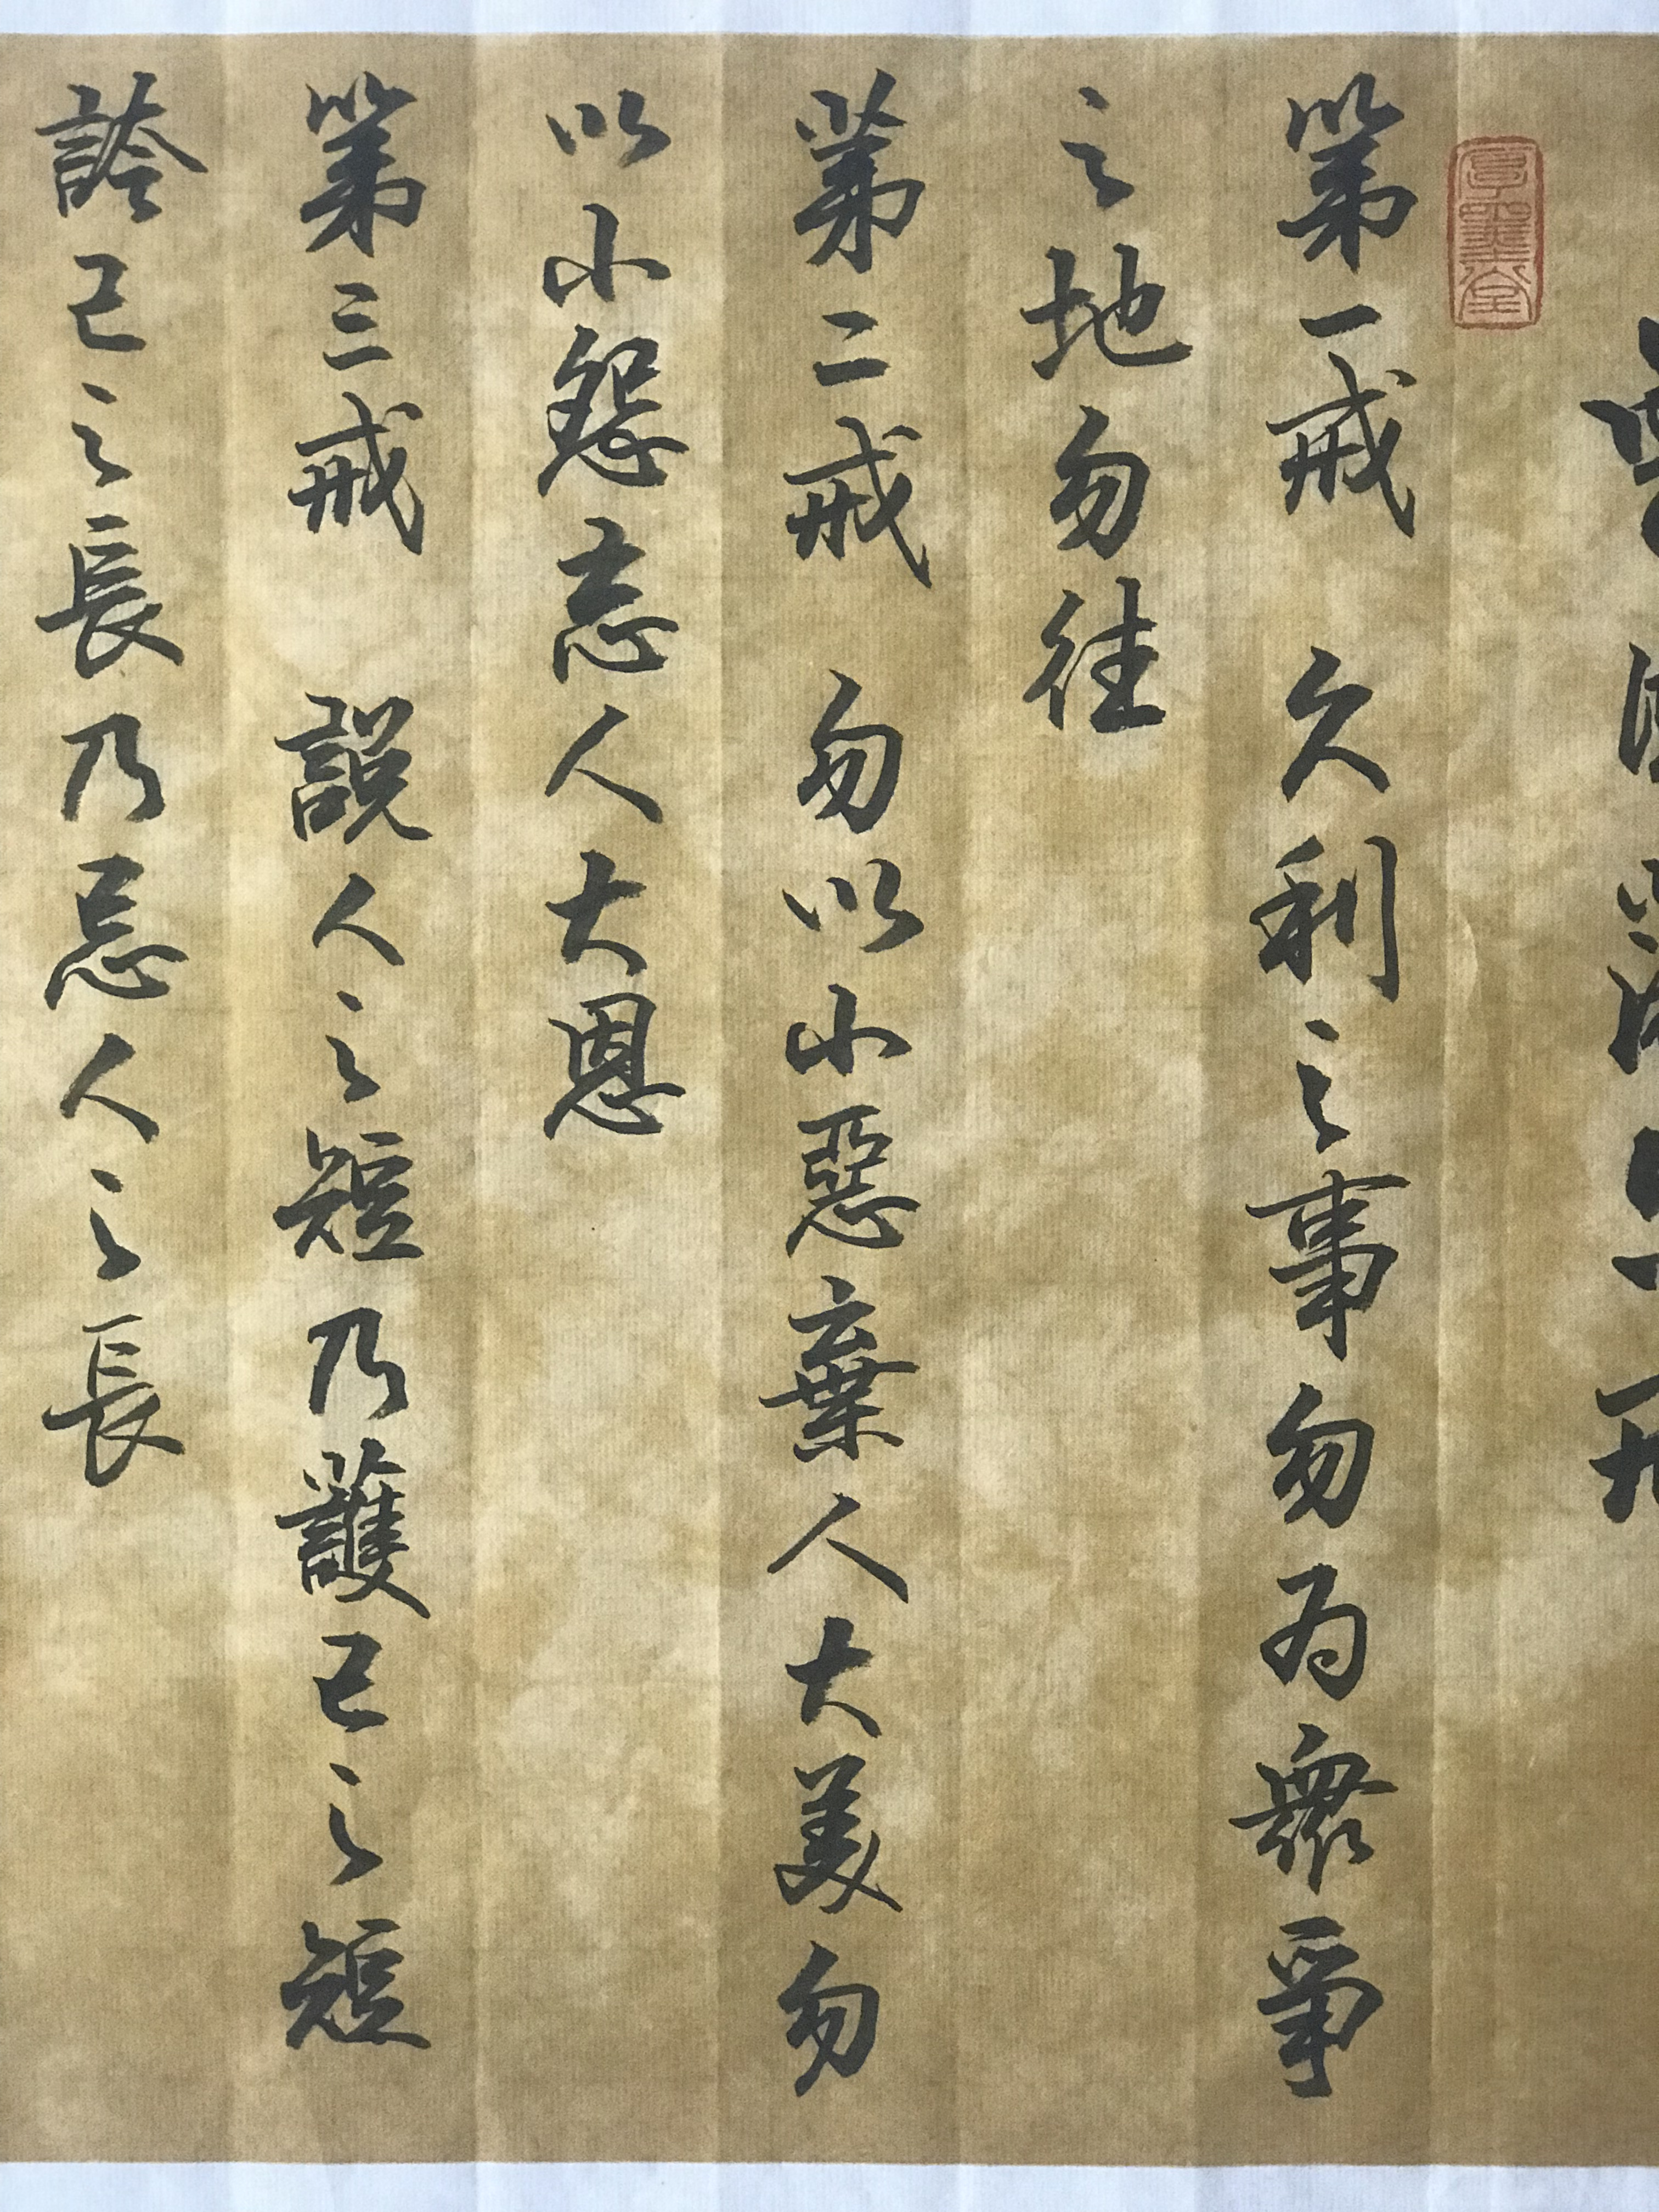 第一戒 久利之事勿为衆爭
之地勿往
第二戒 勿以小惡棄人大美勿
以小怨忘人大恩
第三戒 説人之短乃護己之短
誇己之長乃忌人之長